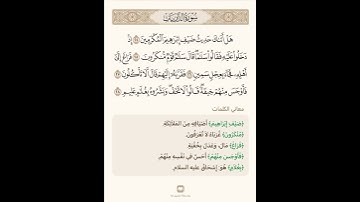 سُورَةُ الذَّارِيَاتِ
هَلْ أَتَىٰكَ حَدِيثُ ضَيْفِ إِبْرَٰهِيمَ ٱلْمُكْرَمِينَ ٢٤ إِذْ
دَخَلُوا۟ عَلَيْهِ فَقَالُوا۟ سَلَٰمًا قَالَ سَلَٰمٌ قَوْمٌ مُّنكَرُونَ ٢٥ فَرَاغَ إِلَىٰٓ
أَهْلِهِۦ فَجَآءَ بِعِجْلٍ سَمِينٍ ٢٦ فَقَرَّبَهُۥٓ إِلَيْهِمْ قَالَ أَلَا تَأْكُلُونَ ٢٧
فَأَوْجَسَ مِنْهُمْ خِيفَةً قَالُوا۟ لَا تَخَفْ وَبَشَّرُوهُ بِغُلَٰمٍ عَلِيمٍ ٢٨
معاني الكلمات
﴿ضَيْفِ إِبْرَاهِيمَ﴾ أَضْيَافِهِ مِنَ المَلَائِكَةِ.
﴿مُنْكَرُونَ﴾ غُرَبَاءُ لَا تُعْرَفُونَ.
﴿فَرَاغَ﴾ مَالَ، وَعَدَلَ بِخُفْيَةٍ.
﴿فَأَوْجَسَ مِنْهُمْ﴾ أَحَسَّ فِي نَفْسِهِ مِنْهُمْ.
﴿بِغُلَامٍ﴾ هُوَ إِسْحَاقُ عليه السلام.